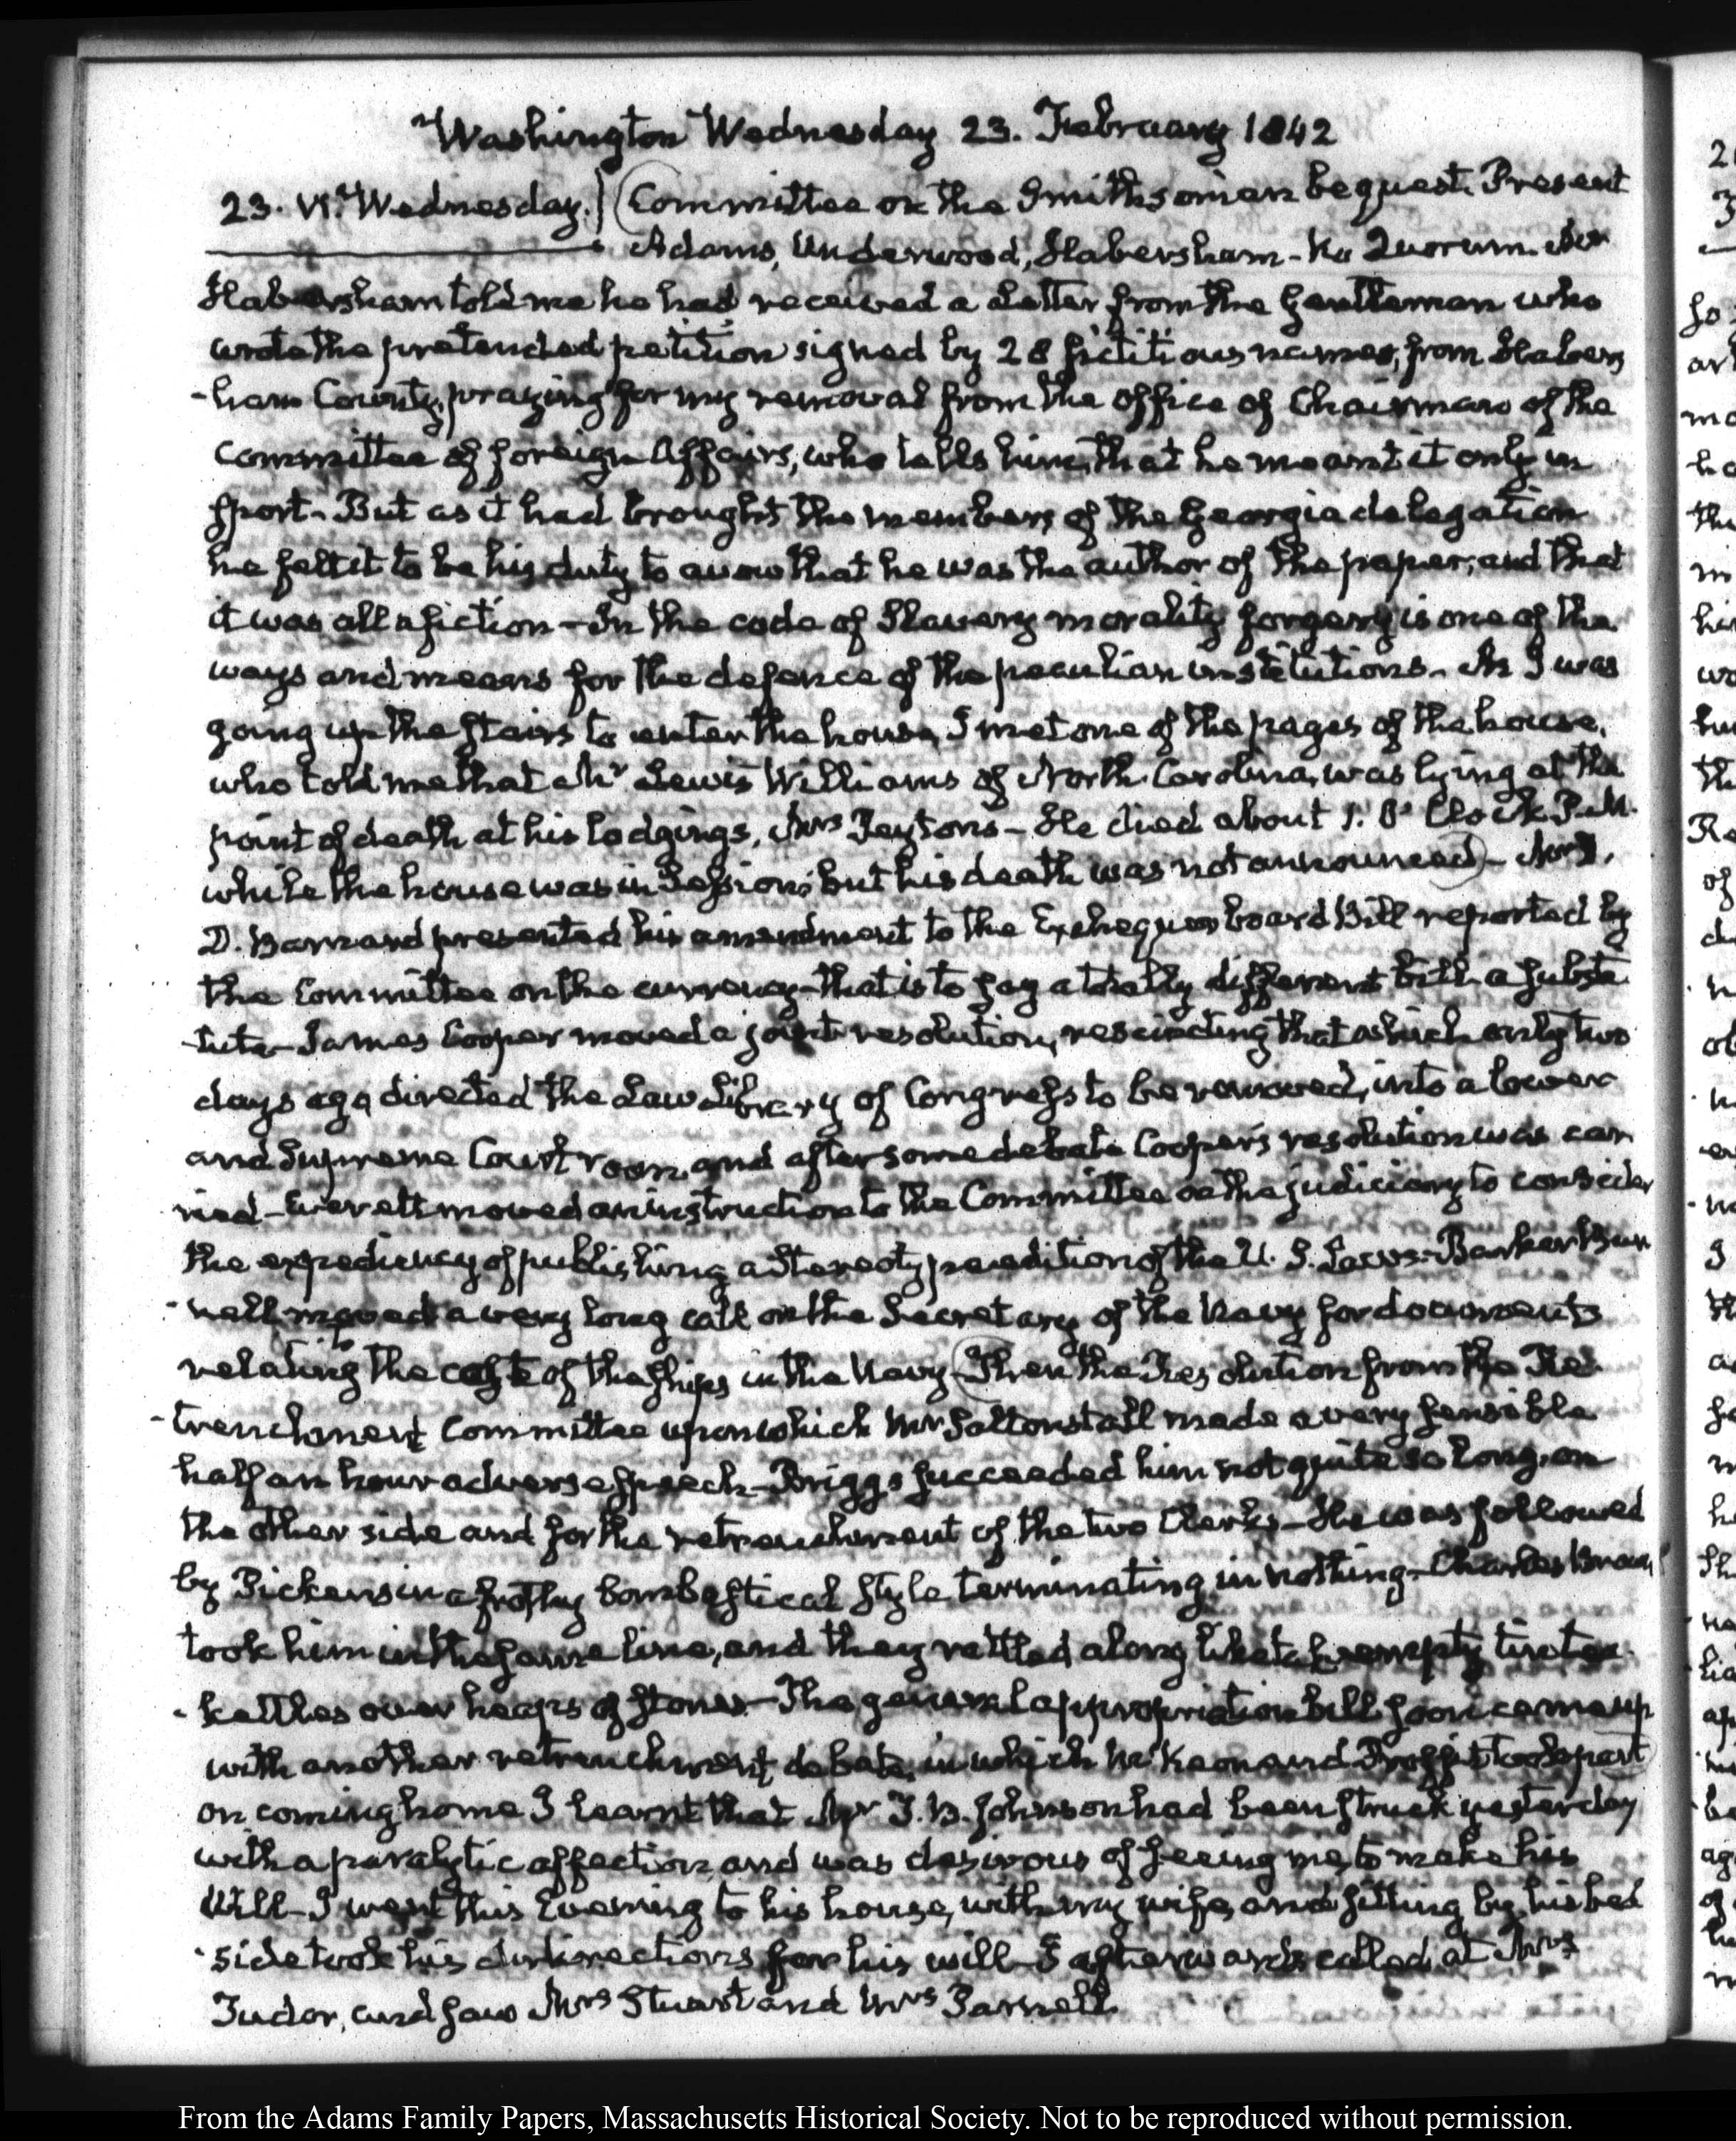 Washington Wednesday 23. February 1842
23. VI. Wednesday. Committee on the Smithsonian bequest. Present
Adams, Underwood, Habersham - No Quorum. Mr
Habersham told me he had received a Letter from the Gentleman who
wrote the pretended petition signed by 28 fictitious names, from Habers
-ham County, praying for my removal from the office of Chairman of the
Committee of foreign Affairs, who tells him, that he meant it only in
sport - But as it had brought the members of the Georgia delegation
he felt it to be his duty to avow that he was the author of the paper, and that
it was all a fiction - In the code of Slavery morality forgery is one of the
ways and means for the defence of the peculiar institutions - As I was
going up the stairs to enter the house, I met one of the pages of the house,
who told me that Mr Lewis Williams of North Carolina, was lying at the
point of death at his lodgings, Mrs Peyton's - He died about 1. O' Clock P.M.
while the house was in Session; but his death was not announced -
D. Barnard presented his amendment to the Exchequer board Bill reported by
the Committee on the currency - that is to say a totally different bill a substi
-tute - James Cooper moved a joint resolution, rescinding that which only two
days ago directed the Law Library of Congress to be removed, into a lower
and Supreme Court room, and after some debate Cooper's resolution was car
ried - Everett moved an instruction to the Committee on the judiciary to consider
the expediency of publishing a stereotype edition of the U. S. Laws - Barker Bur
-nell moved a very long call on the Secretary of the Navy for documents
relating to the costs of the ships in the Navy - Then the Resolution from the Re
-trenchment Committee upon which Mr Saltonstall made a very sensible
half an hour adverse speech - Briggs succeeded him not quite so long, on
the other side and for the retrenchment of the two Clerks - He was followed
by Pickens in a frothy bombastical style terminating in nothing - Charles Brown
took him in the same line, and they rattled along like empty tin tea
-kettles over heaps of stones - The general appropriation bill soon came up
with another retrenchment debate, in which McKeon and Proffit took part
on coming home I learnt that Mr J. B. Johnson had been struck yesterday
with a paralytic affection, and was desirous of seeing me, to make his
Will - I went this Evening to his house, with my wife, and sitting by his bed
-side took his directions for his will - I afterwards called at Mrs
Tudor, and saw Mrs Stuart and Mrs Parnell
From the Adams Family Papers, Massachusetts Historical Society. Not to be reproduced without permission.